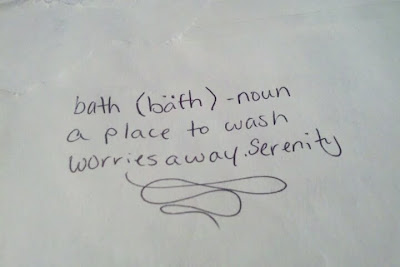 bath (bäth) -noun
a place to wash
worries away. Serenity